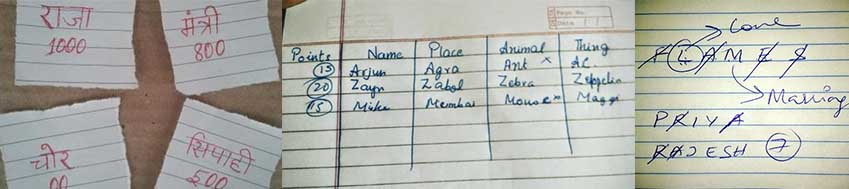 राजा
1000
मंत्री
800
चोर
00
सिपाही
500
Page No.
Date
Points Name Place Animal Thing
15 Arjun Agra Ant × AC
20 Zayn Zabol Zebra Zeppelin
15 Mumbai Mouse ×
Love
F L A M E S
Marriage
PRIYA
RAJESH 7